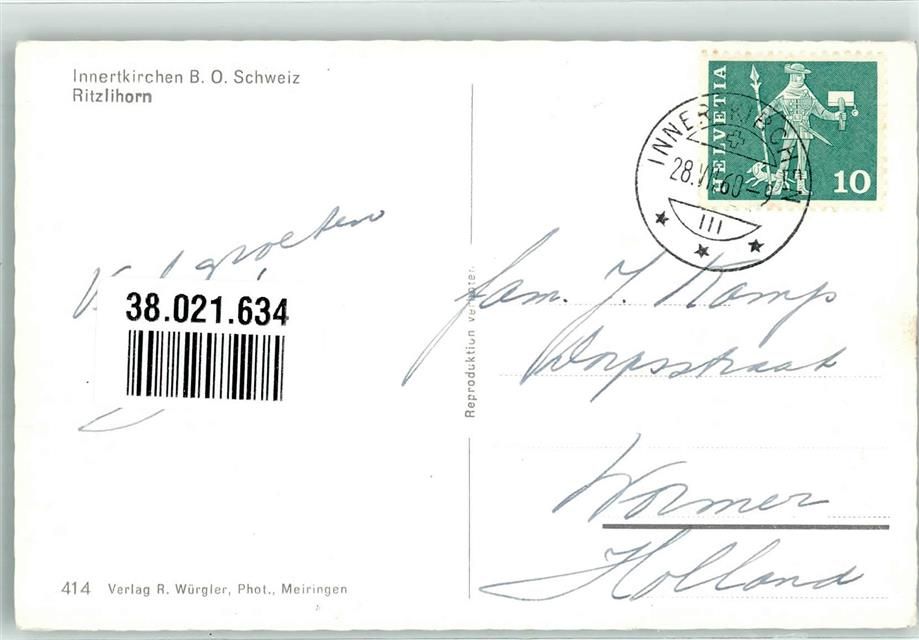 Innertkirchen B. O. Schweiz
Ritzlihorn
HELVETIA
10
INNERTKIRCHEN
60-9
groeten
38.021.634
Reproduktion verboten.
fam. J. Kamp
Dorpsstraat
Wormer
Holland
414 Verlag R. Würgler, Phot., Meiringen